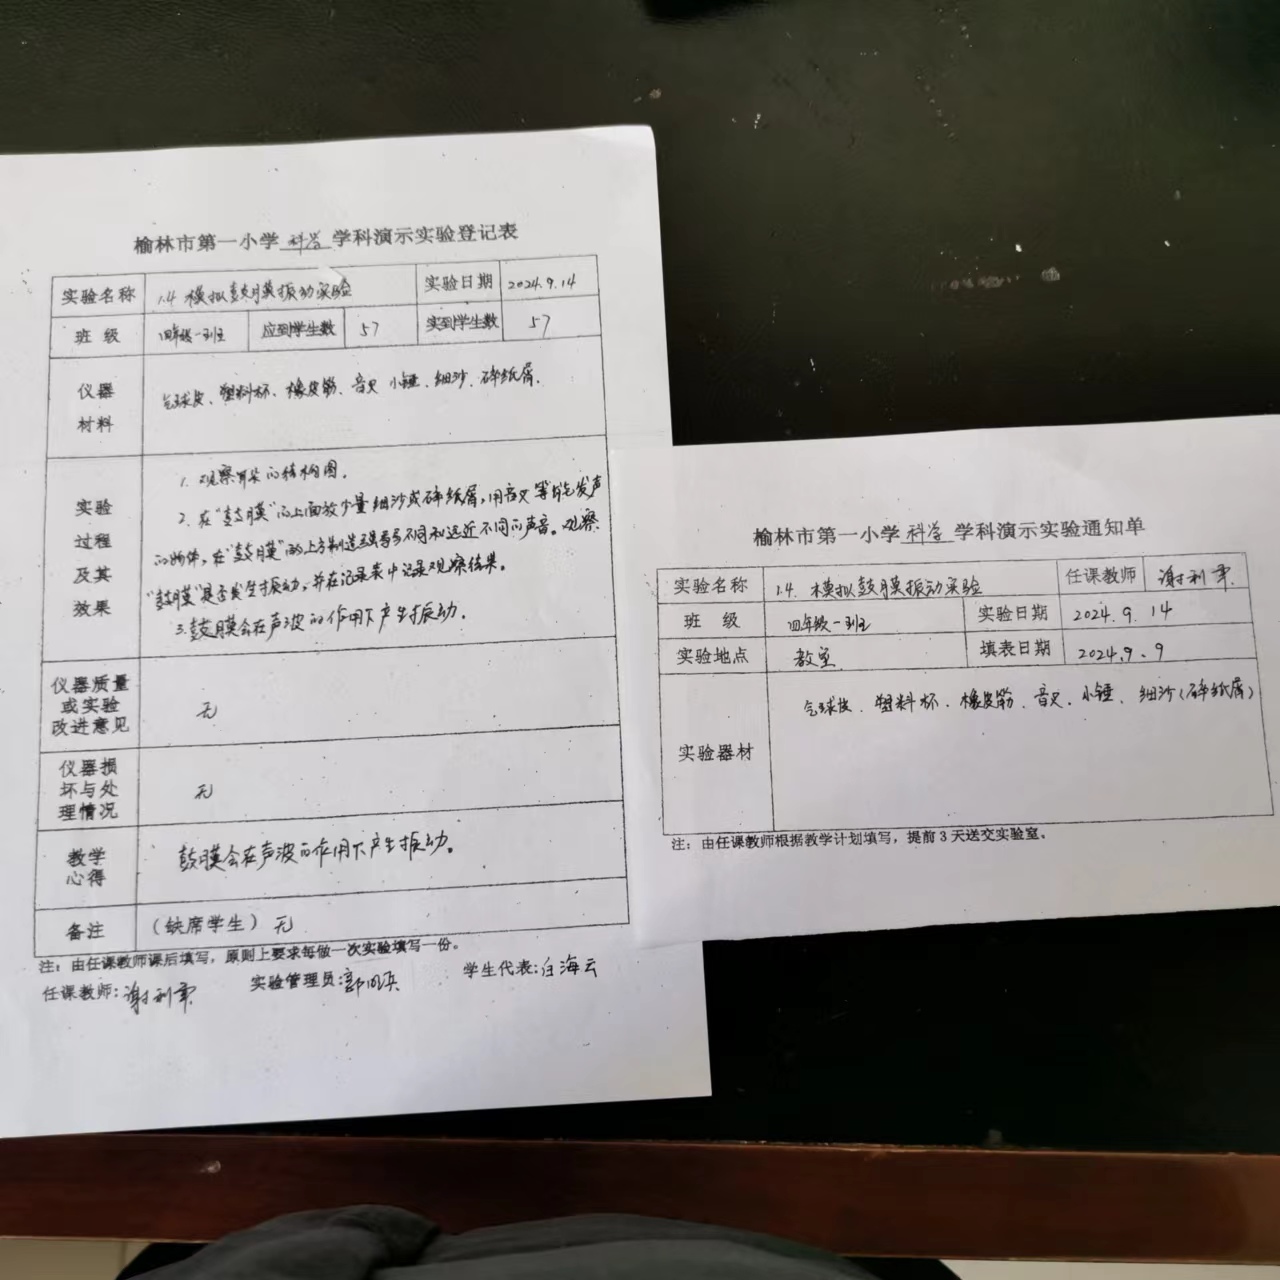 榆林市第一小学 科学 学科演示实验登记表
实验名称 1.4 模拟鼓膜振动实验 实验日期 2024.9.14
班 级 四年级一班 应到学生数 57 实到学生数 57
仪器
材料
气球皮、塑料杯、橡皮筋、音叉、小锤、细沙、碎纸屑。
实验
过程
及其
效果
1. 观察耳朵的结构图。
2. 在“鼓膜”的上面放少量细沙或碎纸屑，用音叉等能发声
的物体，在“鼓膜”的上方制造强弱不同和远近不同的声音。观察
“鼓膜”是否发生振动，并在记录表中记录观察结果。
3. 鼓膜会在声波的作用下产生振动。
仪器质量
或实验
改进意见
无
仪器损
坏与处
理情况
无
教学
心得
鼓膜会在声波的作用下产生振动。
备注 （缺席学生）无
注：由任课教师课后填写，原则上要求每做一次实验填写一份。
任课教师：谢利 实验管理员：郭 学生代表：白海云
榆林市第一小学 科学 学科演示实验通知单
实验名称 1.4. 模拟鼓膜振动实验 任课教师 谢利
班 级 四年级一班 实验日期 2024.9.14
实验地点 教室 填表日期 2024.9.9
实验器材 气球皮、塑料杯、橡皮筋、音叉、小锤、细沙（碎纸屑）
注：由任课教师根据教学计划填写，提前3天送交实验室。